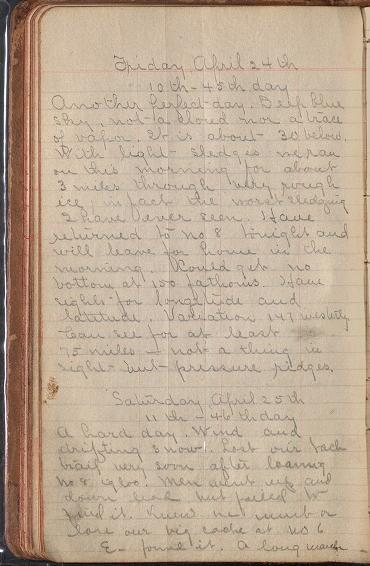 Friday April 24th
10th - 45th day
Another perfect day. Deep blue
sky, not a cloud nor a trace
of vapor. It is about 30 below.
With light sledges we ran
on this morning for about
3 miles through very rough
ice, in fact the worst sledging
I have ever seen. Have
returned to no 8 tonight and
will leave for home in the
morning. Could get no
bottom at 150 fathoms. Have
sights for longitude and
latitude. Variation 147 westerly
Can see for at least
75 miles - not a thing in
sight but pressure ridges.
Saturday April 25th
11th - 46th day
A hard day. Wind and
drifting snow. Lost our back
trail very soon after leaving
No 8 igloo. Men went up and
down lead but failed to
find it. Knew we must or
lose our big cache at no 6
E- found it. A long march